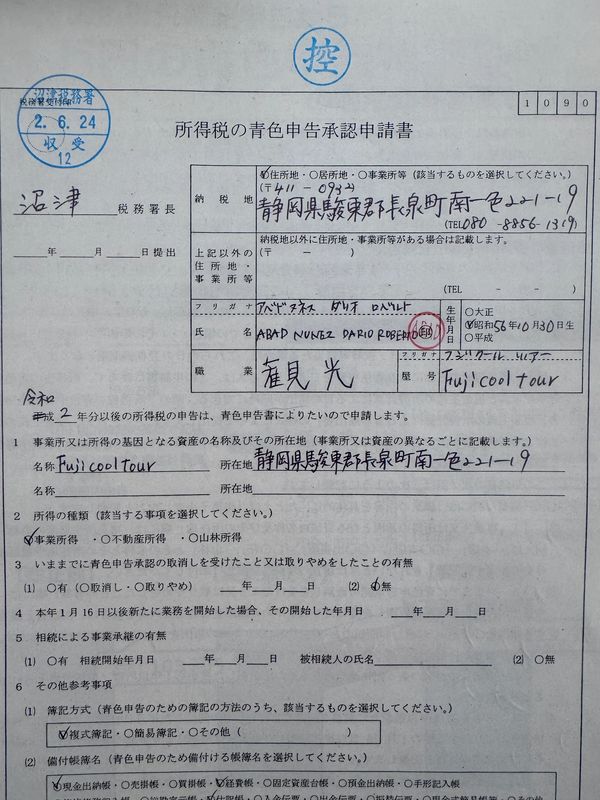 控
1090
沼津税務署
税務署受付印
2.6.24
収受
12
所得税の青色申告承認申請書
沼津 税務署長
年 月 日提出
納税地
住所地・○居所地・○事業所等（該当するものを選択してください。）
（〒411-0932）
静岡県駿東郡長泉町南一色221-19
(TEL080-8856-1319)
上記以外の住所地・事業所等
納税地以外に住所地・事業所等がある場合は記載します。
（〒 － ）
(TEL － － )
フリガナ
アバド ヌネス ダリオ ロベルト
氏名
ABAD NUNEZ DARIO ROBERTO ㊞
生年月日
○大正
昭和56年10月30日生
○平成
職業
見光
フリガナ
フジクール ツアー
屋号
Fuji cool tour
令和
平成2年分以後の所得税の申告は、青色申告書によりたいので申請します。
1 事業所又は所得の基因となる資産の名称及びその所在地（事業所又は資産の異なるごとに記載します。）
名称 Fuji cool tour 所在地 静岡県駿東郡長泉町南一色221-19
名称 所在地
2 所得の種類（該当する事項を選択してください。）
事業所得 ・○不動産所得 ・○山林所得
3 いままでに青色申告承認の取消しを受けたこと又は取りやめをしたことの有無
(1) ○有（○取消し・○取りやめ） 年 月 日 (2) 無
4 本年1月16日以後新たに業務を開始した場合、その開始した年月日 年 月 日
5 相続による事業承継の有無
(1) ○有 相続開始年月日 年 月 日 被相続人の氏名 (2) ○無
6 その他参考事項
(1) 簿記方式（青色申告のための簿記の方法のうち、該当するものを選択してください。）
複式簿記・○簡易簿記・○その他（ ）
(2) 備付帳簿名（青色申告のため備付ける帳簿名を選択してください。）
現金出納帳・○売掛帳・○買掛帳・経費帳・○固定資産台帳・○預金出納帳・○手形記入帳